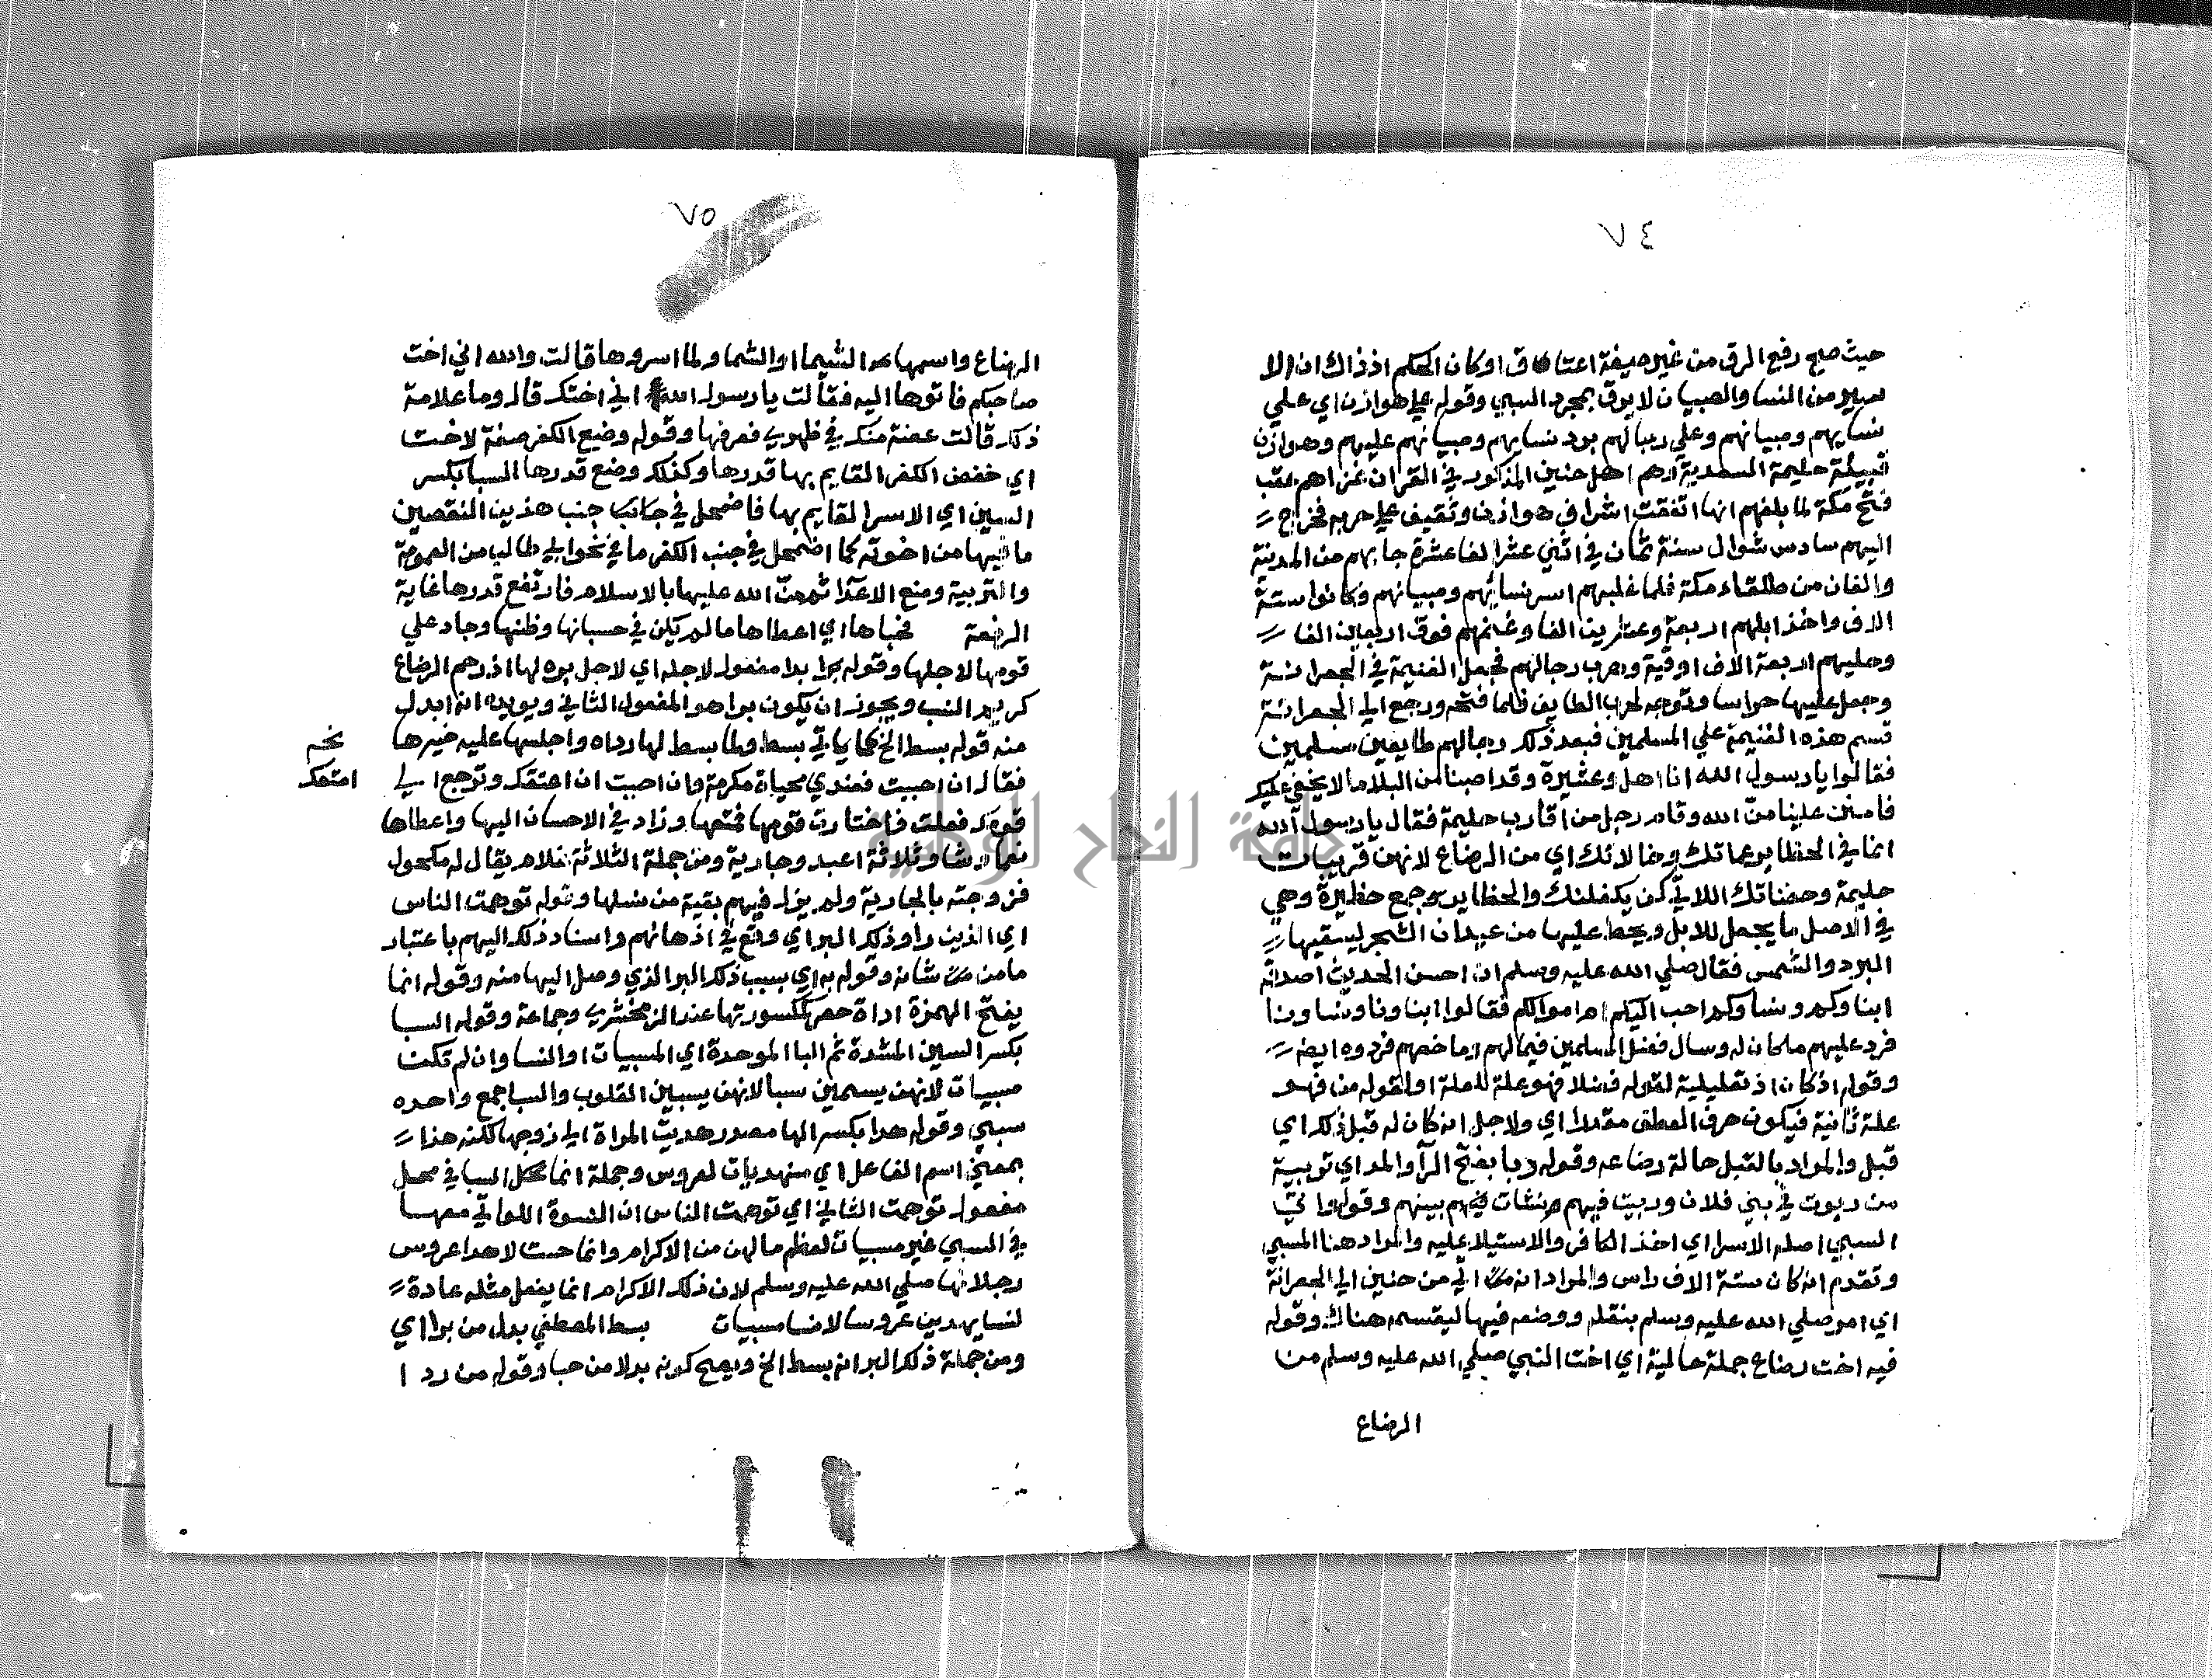 ٧٤
حيث صلح رفيع الرق من غير صيغة اعتاق او كان الحكم اذ ذاك ان الا
سير من النسا والصبيان لا يرق بمجرد السبي وقوله علي هوازن اي علي
نسايهم وصبيانهم وعلي رجالهم برد نسايهم وصبيانهم عليهم وهوازن
قبيلة حليمة السعدية وهم اهل حنين المذكور في القران غزاهم عقب
فتح مكة لما بلغهم انها اتفقت اشراف هوازن وثقيف علي حربه فخرج
اليهم سادس شوال سنة ثمان في اثني عشر الفا عشرة جا بهم من المدينة
والفان من طلقاء مكة فلما غلبهم اسر نسايهم وصبيانهم وكانوا ستة
الاف واخذ ابلهم اربعة وعشرين الفا وغنمهم فوق اربعين الفا
وحليهم اربعة الاف اوقية وهرب رجالهم فجعل الغنيمة في الجعرانة
وجعل عليها حراسا وتوجه لحرب الطايف فلما فتحه ورجع الي الجعرانة
قسم هذه الغنيمة علي المسلمين فبعد ذلك رجالهم طايعين مسلمين
فقالوا يا رسول الله انا اهل وعشيرة وقد اصبنا من البلا ما لا يخفي عليك
فامنن علينا منّ الله وقام رجل من اقارب حليمة فقال يا رسول الله
انما في الحظاير عماتك وخالاتك اي من الرضاع لانهن قريبات
حليمة وحضناتك اللاتي كن يكفلنك والحظاير جمع حظيرة وهي
في الاصل ما يجعل للابل ويحط عليها من عيدان الشجر ليسقيها
البرد والشمس فقال صلي الله عليه وسلم ان احسن الحديث اصدقه
ابناوكم ونساوكم احب اليكم ام اموالكم فقالوا ابناونا ونساونا
فرد عليهم ما كان له وسال فضل المسلمين فيما لهم وما خصهم فردوه ايضا
وقوله اذ كان اذ تعليلية لقوله فضلا فهو علة للعلة او لقوله من فهو
علة ثانية فيكون حرف العطف مقدرا اي ولاجل انه كان له قبل ذلك اي
قبل والمراد بالقبل حالة رضاعه وقوله ربا بفتح الرآ والمد اي تربية
من ربوت في بني فلان وربيت فيهم ونشات فيهم بينهم وقوله واتي
السبي اصله الاسر اي اخذ الكافر والاستيلا عليه والمراد هنا المسبي
وتقدم انه كان ستة الاف راس والمراد انه اتي من حنين الي الجعرانة
اي امر صلي الله عليه وسلم بنقله ووضعه فيها ليقسمه هناك وقوله
فيه اخت رضاع جملة حالية اي اخت النبي صلي الله عليه وسلم من
الرضاع
٧٥
الرضاع واسمها الشيما او الشما ولما اسروها قالت والله اني اخت
صاحبكم فاتوها اليه فقالت يا رسول الله اني اختك قال وما علامة
ذلك قالت عضة منك في ظهري فعرفها وقوله وضع الكفر صفة لاخت
اي خفض الكفر القايم بها قدرها وكذلك وضع قدرها السبا بكسر
السين اي الاسر القايم بها فاضمحل في جانب جنب هذين النقصين
ما فيها من اخوته كما اضمحل في جنب الكفر ما في نحو ابي طالب من العمومة
والتربية ومنع الاعدآ ثم منّ الله عليها بالاسلام فارتفع قدرها غاية
الرفعة فحباها اي اعطاها ما لم يكن في حسبانها وظنها وجاد علي
قومها لاجلها وقوله برا بدا مفعول لاجله اي لاجل بره لها اذ رحم الرضاع
كرحم النسب ويجوز ان يكون برا هو المفعول الثاني ويويده انه ابدل
منه قوله بسط الخ كما ياتي بسط ولما بسط لها رداه واجلسها عليه خيرها
فقال ان احببت فعندي محياة مكرمة وان احببت ان اعتقك وترجع الي
نخـ
امتعك
قومك فعلت فاختارت قومها فمتعها وزاد في الاحسان اليها واعطاها
نعما وشا وثلاثة اعبد وجارية ومن جملة الثلاثة غلام يقال له مكحول
فزوجته بالجارية ولم يزل فيهم بقية من نسلها وقوله توهمت الناس
اي الذين راوا ذلك البر اي وقع في اذهانهم واسناد ذلك اليهم باعتبار
ما من شانه وقوله به اي بسبب ذلك البر الذي وصل اليها منه وقوله انما
بفتح الهمزة اداة حصر كمكسورتها عند الزمخشري وجماعة وقوله السبا
بكسر السين المشدة ثم البا الموحدة اي المسبيات او النسا وان لم تكن
مسبيات لانهن يسمين سبا لانهن يسبين القلوب والسبا جمع واحده
سبي وقوله هدا بكسر الها مصدر هديت المراة الي زوجها لكنه هذا
بمعني اسم الفاعل اي منهديات لعروس وجملة انما محل السبا في محل
مفعول توهمت الثاني اي توهمت الناس ان النسوة اللواتي معها
في السبي غير مسبيات لعظم ما لهن من الاكرام وانما حست لاهدا عروس
رجلا لها صلي الله عليه وسلم لان ذلك الاكرام انما يفعل مثله عادة
لنسا يهدين عروسا لا نسا مسبيات بسط المصطفي بدل من برا اي
ومن جملة ذلك البر انه بسط الخ ويصح كونه بدلا من حبا وقوله من ردا
جامعة النجاح الوطنية